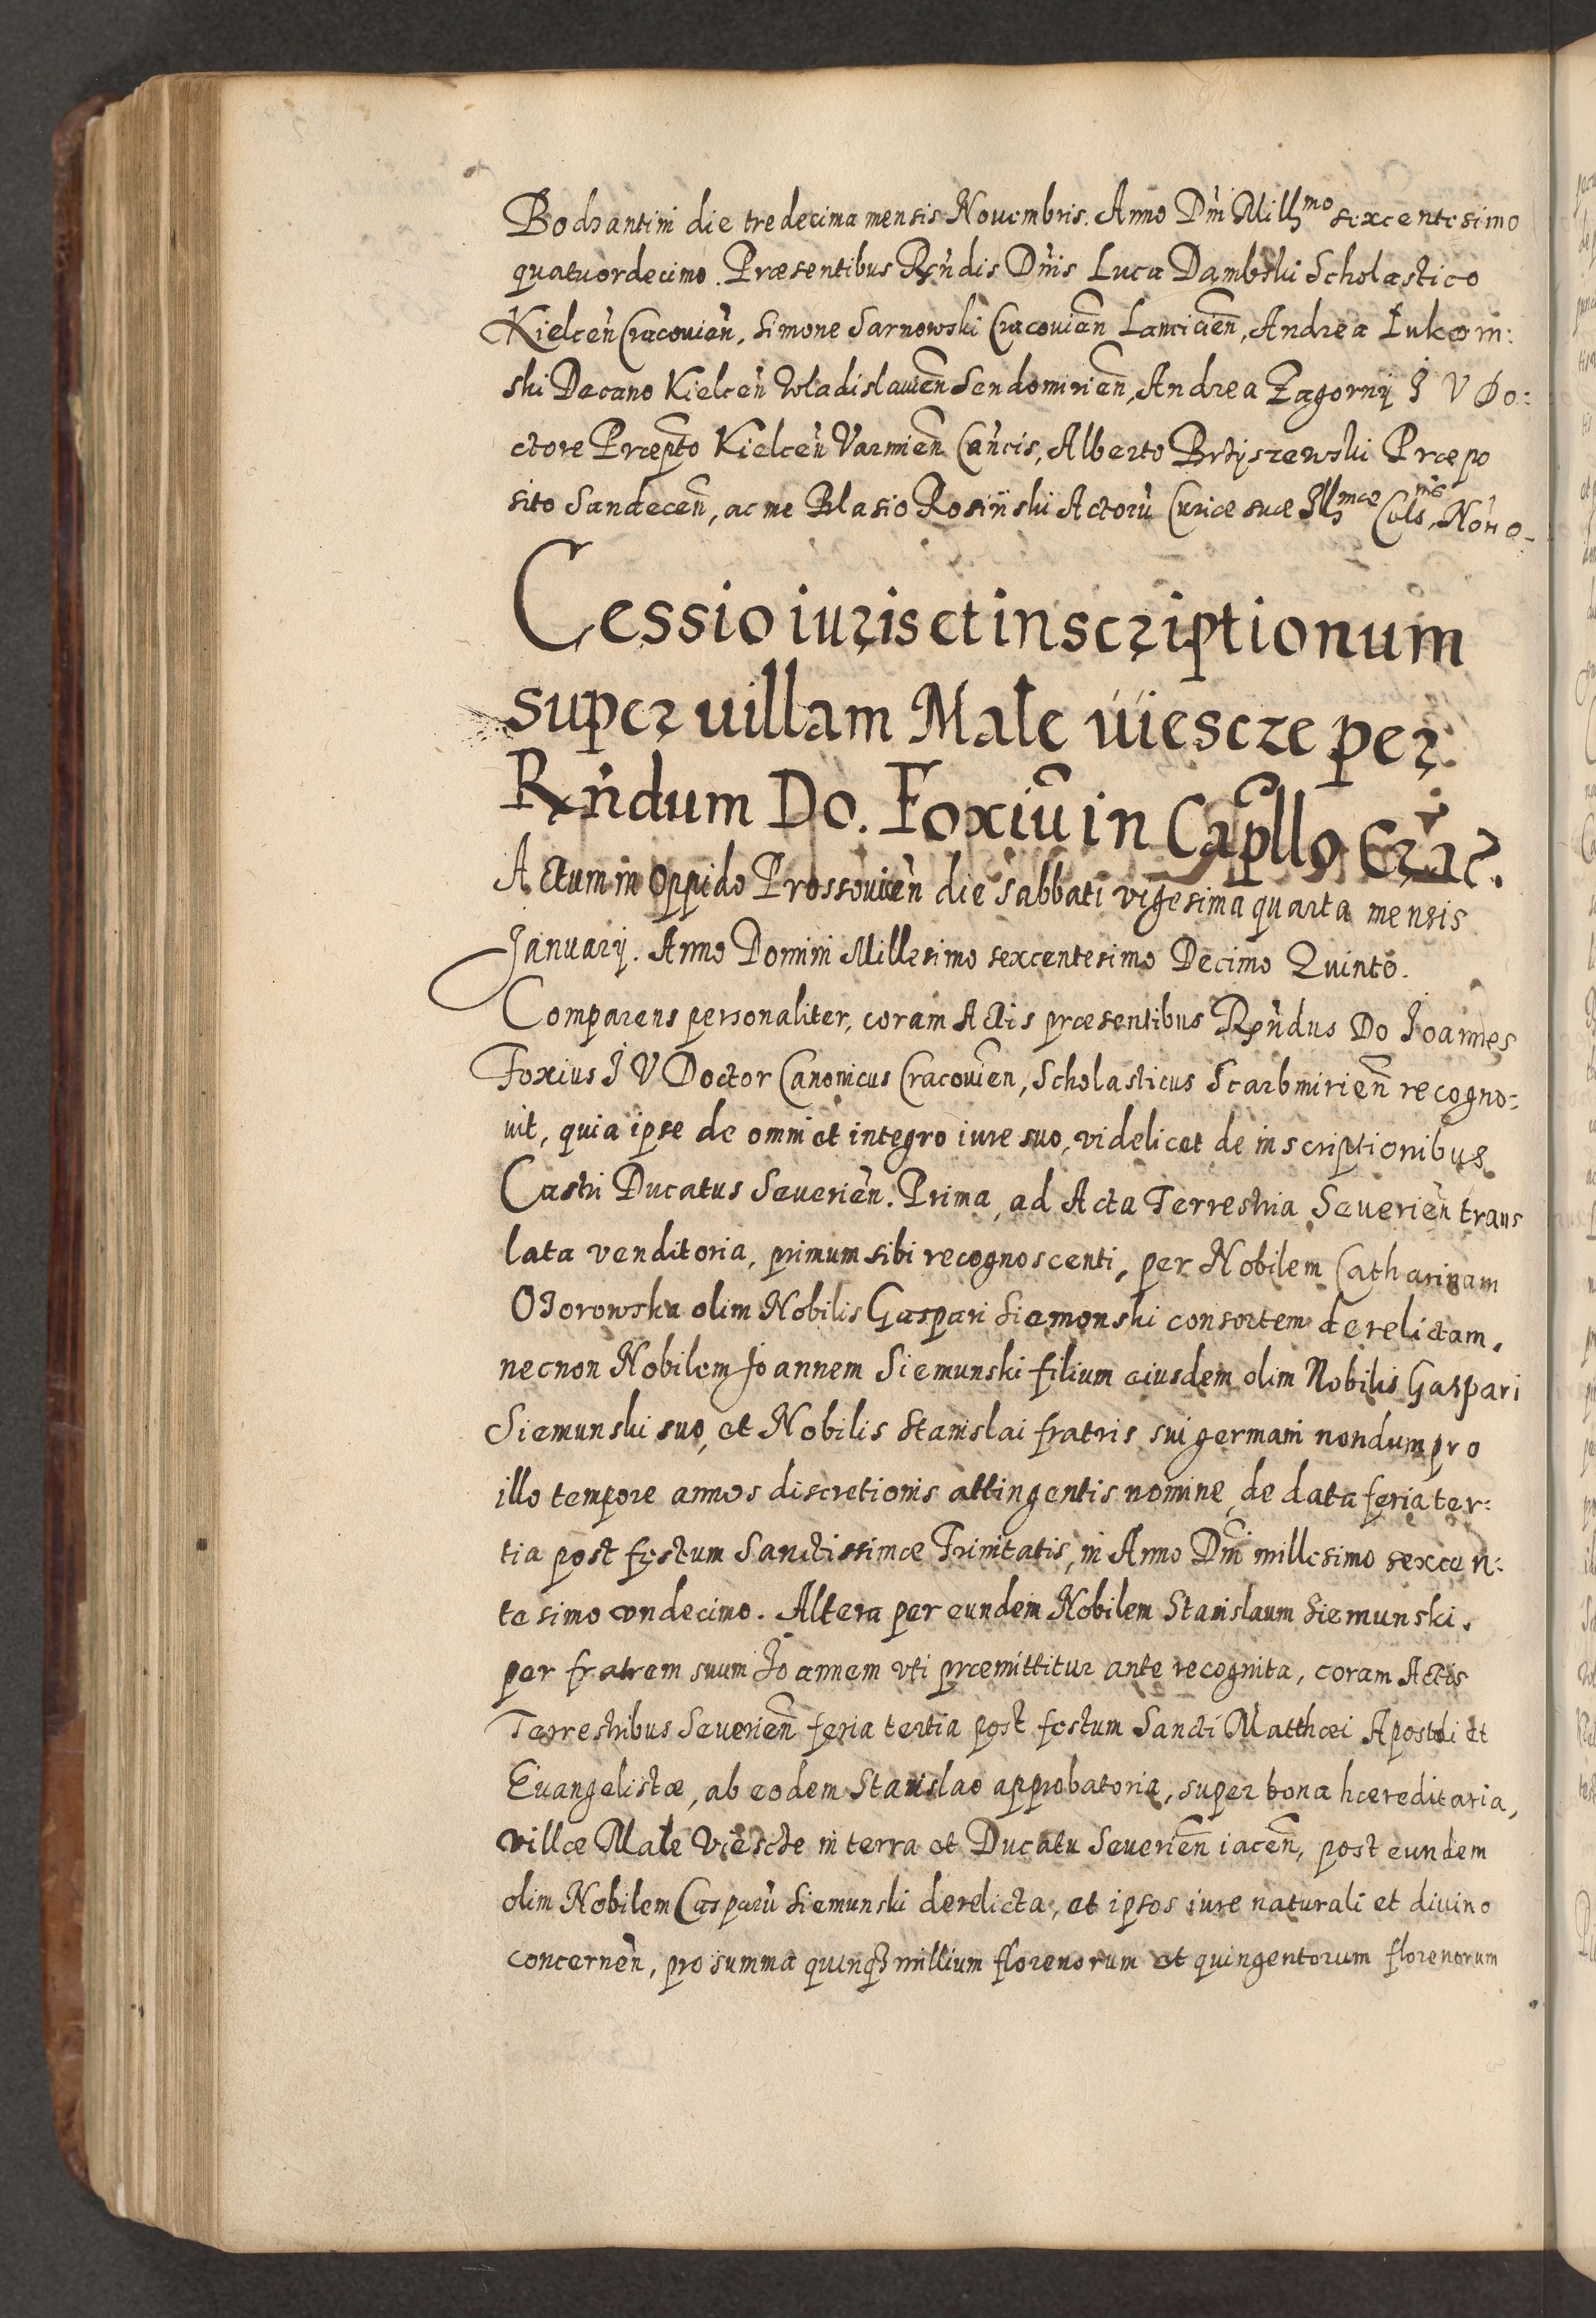 Bodzantini die tredecima mensis Nouembris. Anno Dñi Millmo sexcentesimo
quatuordecimo. Præsentibus Rñdis Dñis Luca Dąmbski Scholastico
Kielceñ Cracouieñ, Simone Sarnowski Cracouieñ Lanicieñ, Andrea Łukom:
ski Decano Kielceñ Wladislauieñ Sendomirieñ, Andrea Zagorny I V Do:
ctore Præpto Kielceñ Varmieñ Cañcis, Alberto Brtyszewski Præpo
sito Sandeceñ, ac me Blasio Rosiński Actorũ Curiæ suæ Illmæ Cels. Noño
Cessio iuris et inscriptionum
super uillam Małe uiescze per
Rñdum Do. Foxiũ in Capllo Crac.
Actum in Oppido Prossouicẽn die Sabbati vigesima quarta mensis
Januarij. Anno Domini Millesimo sexcentesimo Decimo Quinto.
Comparens personaliter, coram Actis præsentibus Rñdus Do Joannes
Foxius I V Doctor Canonicus Cracouieñ, Scholasticus Scarbmirieñ recogno:
uit, quia ipse de omni et integro iure suo, videlicet de inscriptionibus
Castri Ducatus Seuerieñ. Prima, ad Acta Terrestria Seuerieñ trans
lata venditoria, primum sibi recognoscenti, per Nobilem Catharinam
Ozorowska olim Nobilis Gaspari Siemonski consortem derelictam,
necnon Nobilem Joannem Siemunski filium eiusdem olim Nobilis Gaspari
Siemunski suo, et Nobilis Stanislai fratris sui germani nondum pro
illo tempore annos discretionis attingentis nomine, de data feria ter:
tia post festum Sanctissimæ Trinitatis, in Anno Dñi millesimo sexcen:
tesimo vndecimo. Altera per eundem Nobilem Stanislaum Siemunski,
per fratrem suum Joannem vti præmittitur ante recognita, coram Actis
Terrestribus Seuerieñ feria tertia post festum Sancti Matthæi Apostoli et
Euangelistæ, ab eodem Stanislao approbatoria, super bona hæreditaria,
villæ Małe Viescze in terra et Ducatu Seuerieñ iaceñ, post eundem
olim Nobilem Casparũ Siemunski derelicta, et ipsos iure naturali et diuino
concerneñ, pro summa quinqз millium florenorum et quingentorum florenorum